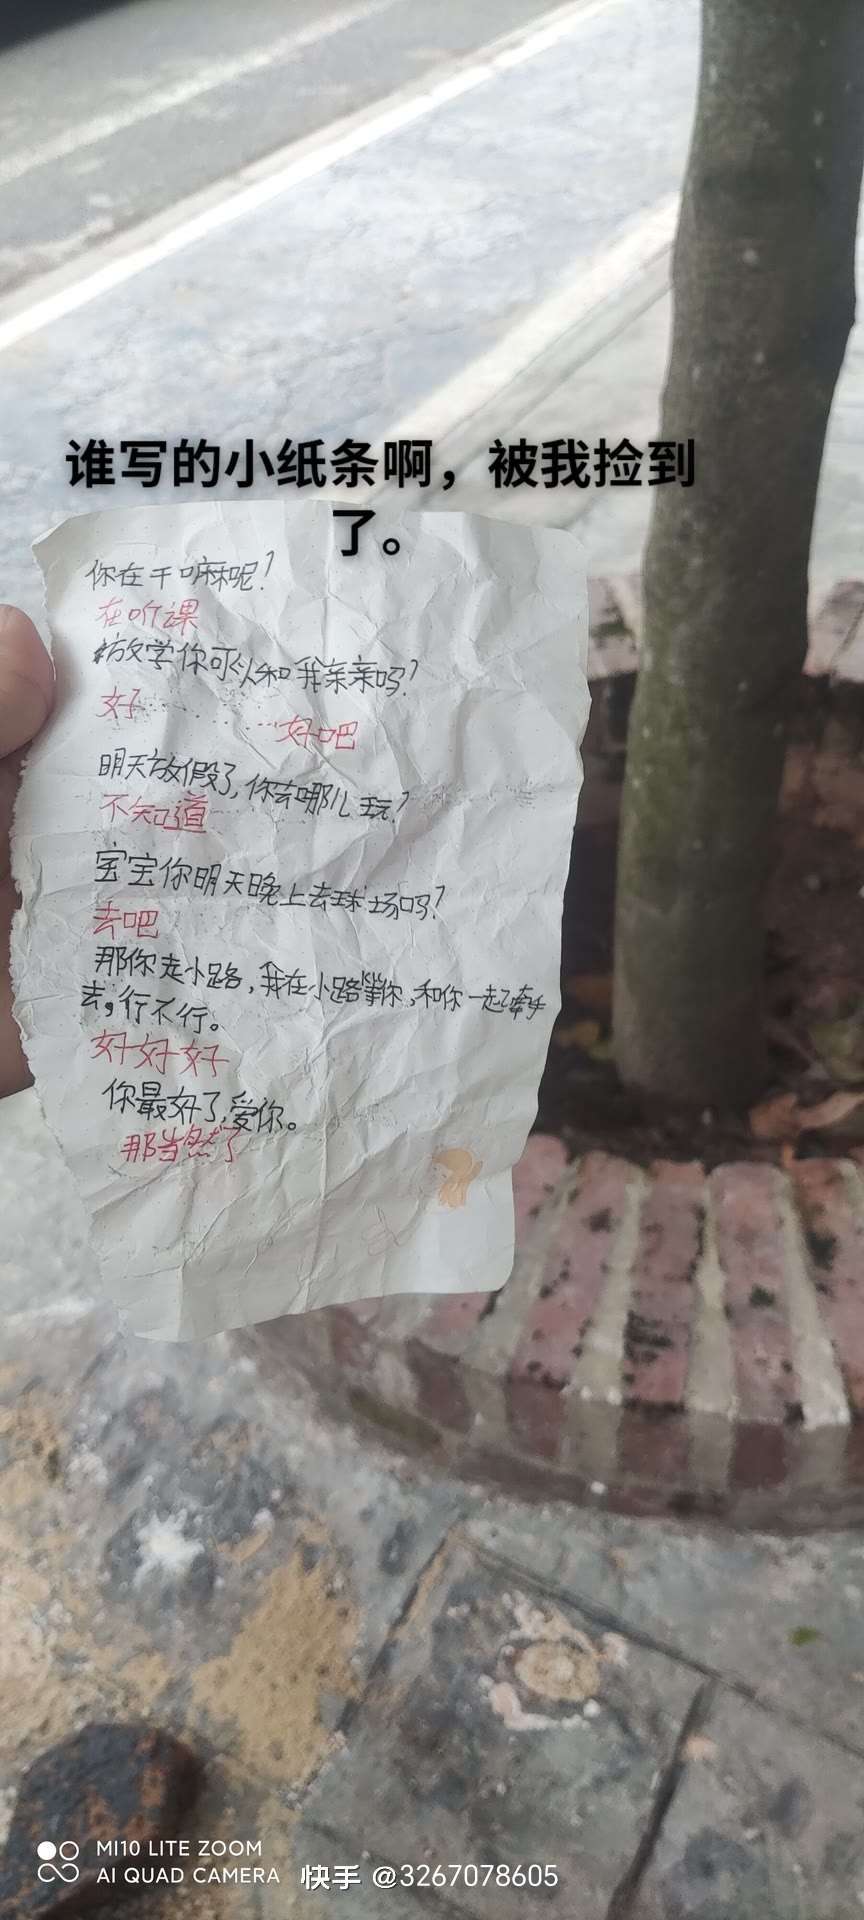 谁写的小纸条啊，被我捡到
了。
你在干嘛呢？
在听课
放学你可以和我亲亲吗？
好…………好吧
明天放假了，你去哪儿玩？
不知道
宝宝你明天晚上去球场吗？
去吧
那你走小路，我在小路等你，和你一起牵手
去，行不行。
好好好
你最好了，爱你。
那当然了
MI10 LITE ZOOM
AI QUAD CAMERA
快手 @3267078605